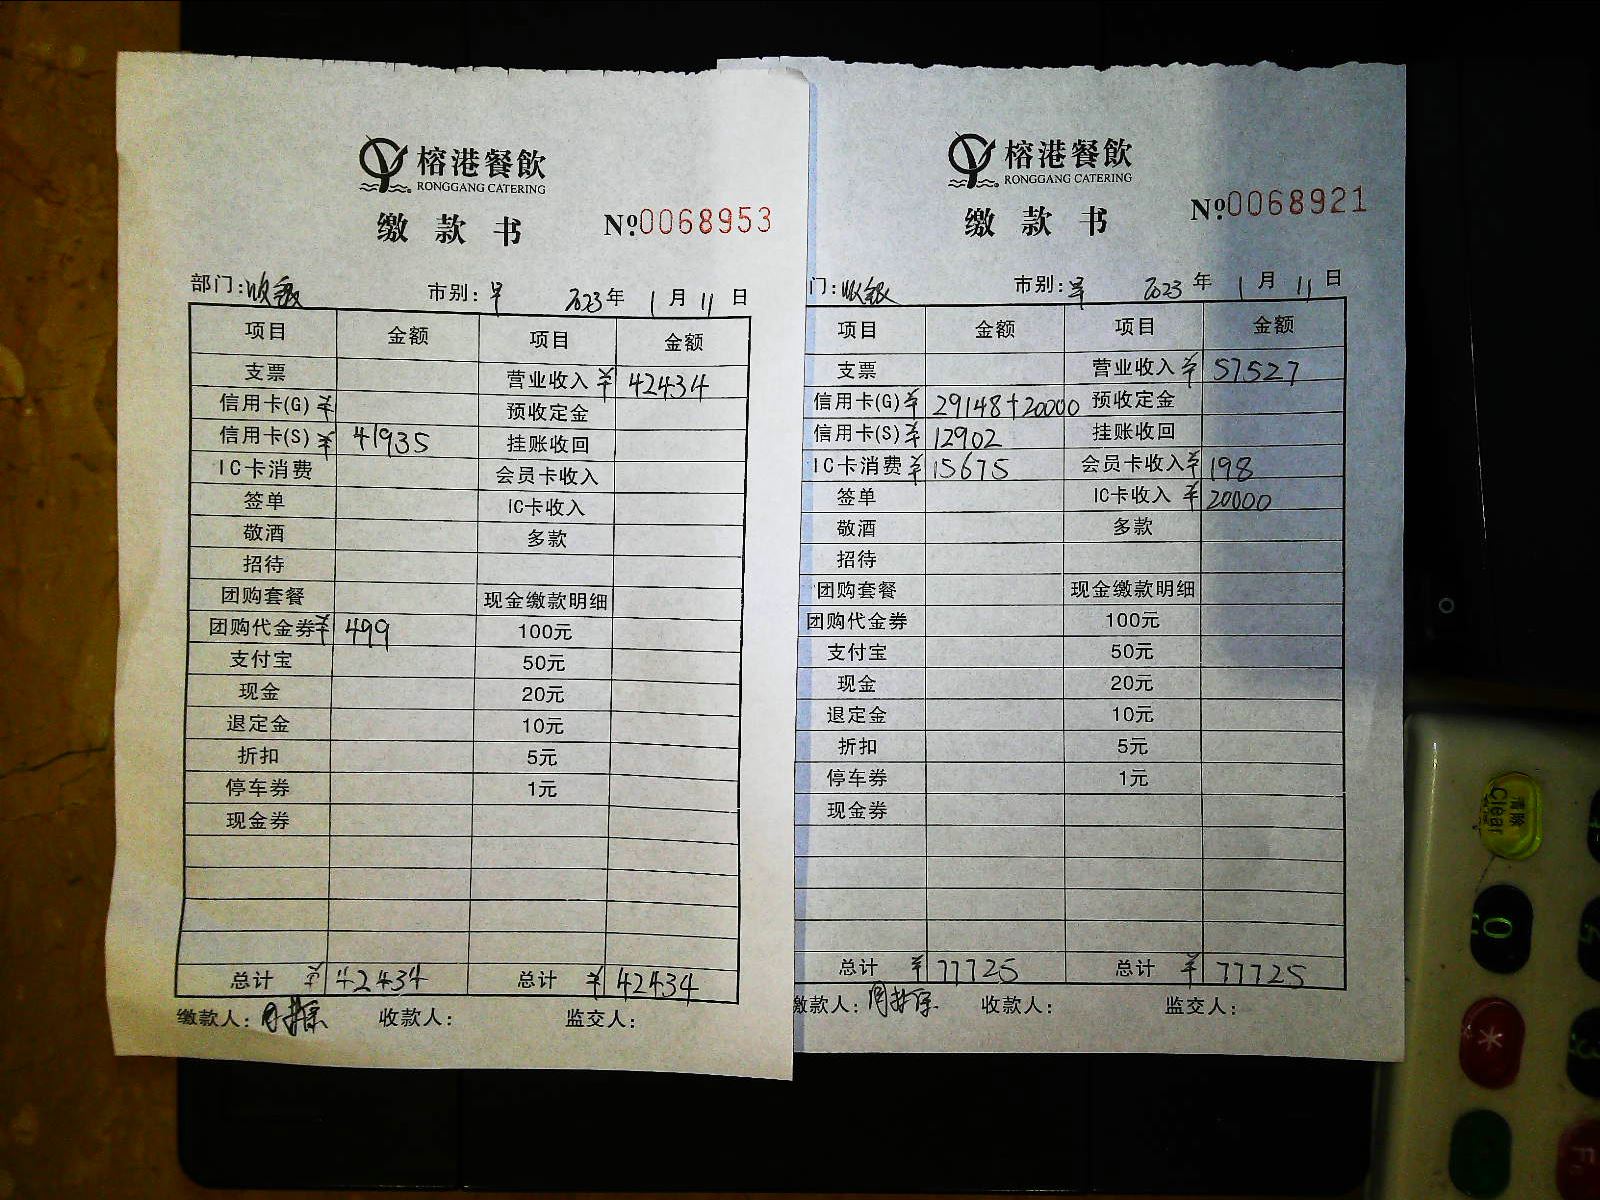 榕港餐飲
RONGGANG CATERING
缴款书 №0068953
部门:收银 市别:早 2023年1月11日
项目 金额 项目 金额
支票 营业收入 ¥ 42434
信用卡(G) ¥ 预收定金
信用卡(S) ¥ 41935 挂账收回
IC卡消费 会员卡收入
签单 IC卡收入
敬酒 多款
招待
团购套餐 现金缴款明细
团购代金券 ¥ 499 100元
支付宝 50元
现金 20元
退定金 10元
折扣 5元
停车券 1元
现金券
总计 ¥ 42434 总计 ¥ 42434
缴款人: 收款人: 监交人:
榕港餐飲
RONGGANG CATERING
缴款书 №0068921
门:收银 市别:早 2023年1月11日
项目 金额 项目 金额
支票 营业收入 ¥ 57527
信用卡(G) ¥ 29148+20000 预收定金
信用卡(S) ¥ 12902 挂账收回
IC卡消费 ¥ 15675 会员卡收入 ¥ 198
签单 IC卡收入 ¥ 20000
敬酒 多款
招待
团购套餐 现金缴款明细
团购代金券 100元
支付宝 50元
现金 20元
退定金 10元
折扣 5元
停车券 1元
现金券
总计 ¥ 77725 总计 ¥ 77725
缴款人: 收款人: 监交人:
清除
Clear
0
*